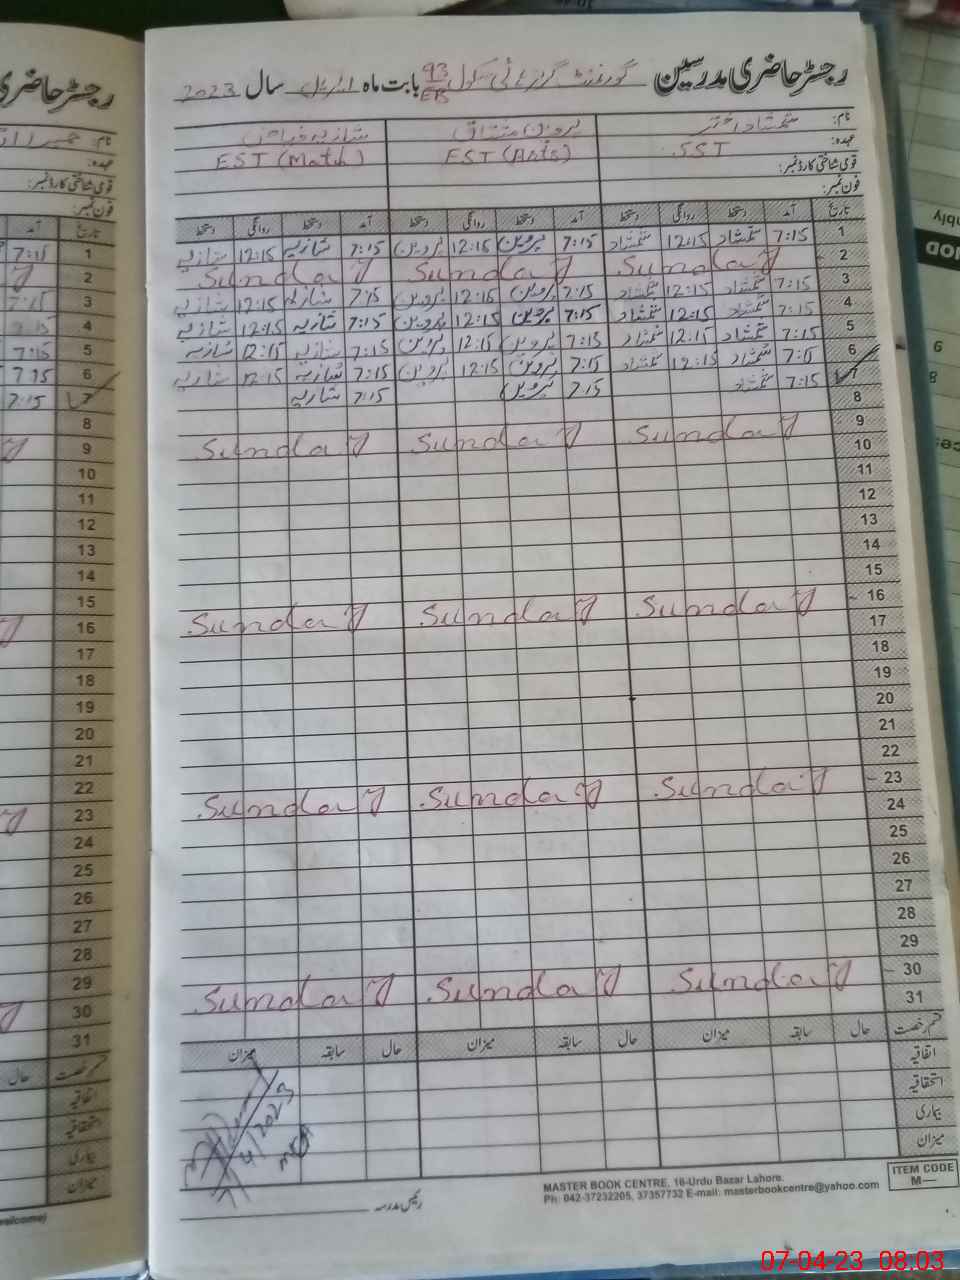 رجسٹر حاضری مدرسین گورنمنٹ گرلز ہائی سکول 93/EB بابت ماہ اپریل سال 2023
نام: شمشاد اختر پروین مشتاق شازیہ فیاض
عہدہ: SST EST (Arts) EST (Math)
قومی شناختی کارڈ نمبر:
فون نمبر:
تاریخ آمد دستخط روانگی دستخط آمد دستخط روانگی دستخط آمد دستخط روانگی دستخط
1 7:15 شمشاد 12:15 شمشاد 7:15 پروین 12:15 پروین 7:15 شازیہ 12:15 شازیہ
2 Sunday Sunday Sunday
3 7:15 شمشاد 12:15 شمشاد 7:15 پروین 12:15 پروین 7:15 شازیہ 12:15 شازیہ
4 7:15 شمشاد 12:15 شمشاد 7:15 پروین 12:15 پروین 7:15 شازیہ 12:15 شازیہ
5 7:15 شمشاد 12:15 شمشاد 7:15 پروین 12:15 پروین 7:15 شازیہ 12:15 شازیہ
6 7:15 شمشاد 12:15 شمشاد 7:15 پروین 12:15 پروین 7:15 شازیہ 12:15 شازیہ
7 7:15 شمشاد 7:15 پروین 7:15 شازیہ
8
9 Sunday Sunday Sunday
10
11
12
13
14
15
16 Sunday Sunday Sunday
17
18
19
20
21
22
23 Sunday Sunday Sunday
24
25
26
27
28
29
30 Sunday Sunday Sunday
31
قسم رخصت حال سابقہ میزان حال سابقہ میزان حال سابقہ میزان
اتفاقیہ
استحقاقیہ
بیماری
میزان
4/2023
رئیس مدرسہ
MASTER BOOK CENTRE, 16-Urdu Bazar Lahore.
Ph: 042-37232205, 37357732 E-mail: masterbookcentre@yahoo.com
ITEM CODE
M—
رجسٹر حاضری
نام:
عہدہ:
قومی شناختی کارڈ نمبر:
فون نمبر:
تاریخ آمد
1 7:15
2
3 7:15
4 7:15
5 7:15
6 7:15
7 7:15
8
9
10
11
12
13
14
15
16
17
18
19
20
21
22
23
24
25
26
27
28
29
30
31
قسم رخصت حال
اتفاقیہ
استحقاقیہ
بیماری
میزان
07-04-23 08:03